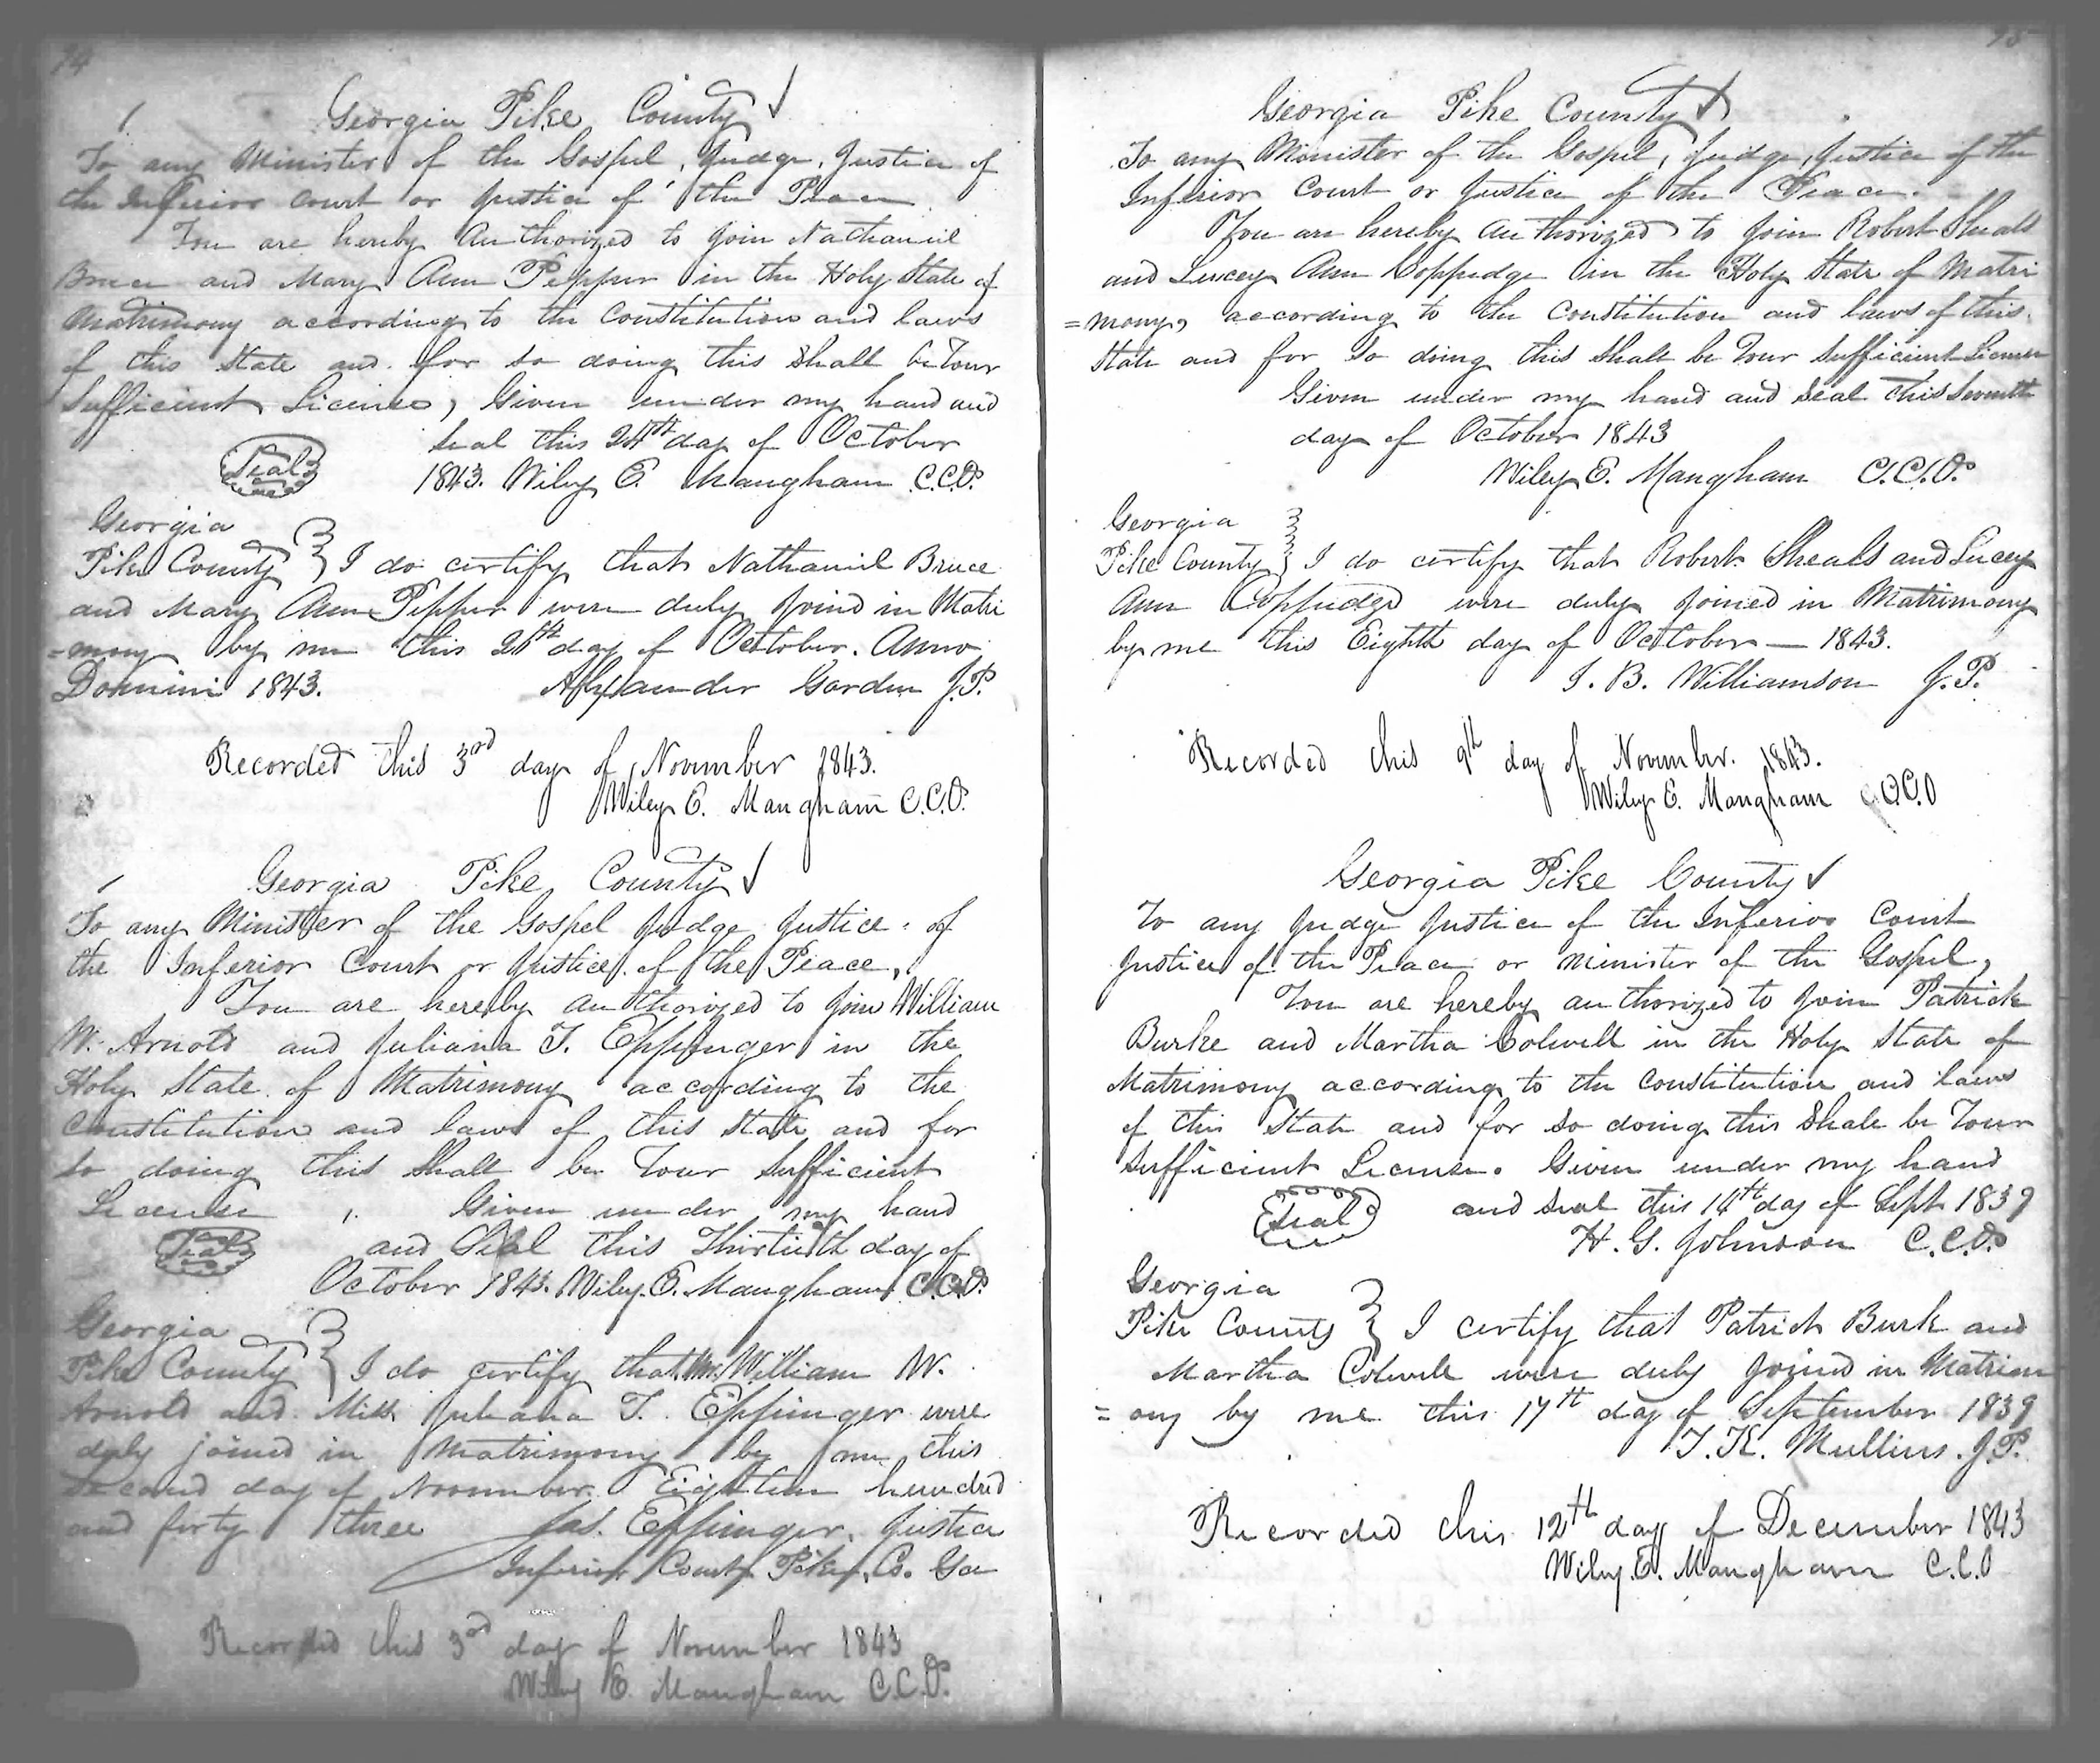 94
Georgia Pike County
To any Minister of the Gospel, Judge, Justice of
the Inferior Court or Justice of the Peace
You are hereby Authorized to Join Nathaniel
Bruce and Mary Ann Pepper in the Holy State of
Matrimony according to the Constitution and laws
of this State and for so doing this Shall be Your
Sufficient License, Given under my hand and
Seal this 24th day of October
Seal
1843. Wiley E. Mangham C.C.O.
Georgia
Pike County } I do certify that Nathaniel Bruce
and Mary Ann Pepper were duly Joind in Matri
=mony by me this day of October. Anno
Domini 1843. Alexander Garden J.P.
Recorded this 3rd day of November 1843.
Wiley E. Mangham C.C.O.
Georgia Pike County
To any Minister of the Gospel Judge Justice of
the Inferior Court or Justice of the Peace,
You are hereby Authorized to Join William
W. Arnold and Juliana T. Eppinger in the
Holy State of Matrimony according to the
Constitution and laws of this State and for
so doing this Shall be Your Sufficient
License, Given under my hand
Seal
and Seal this Thirtieth day of
October 1843. Wiley E. Mangham C.C.O.
Georgia
Pike County } I do certify that Mr. William W.
Arnold and Miss Juliana T. Eppinger were
duly joined in Matrimony by me this
Second day of November Eighteen hundred
and forty three Jas. Eppinger, Justice
Inferior Court Pike, Co. Ga
Recorded this 3rd day of November 1843
Wiley E. Mangham C.C.O.
95
Georgia Pike County
To any Minister of the Gospel, Judge, Justice of the
Inferior Court or Justice of the Peace.
You are hereby Authorized to Join Robert Sheals
and Lucey Ann Coppedge in the Holy State of Matri
=mony, according to the Constitution and laws of this
State and for So doing this Shall be Your Sufficient License
Given under my hand and Seal this Seventh
day of October 1843
Wiley E. Mangham C.C.O.
Georgia
Pike County } I do certify that Robert Sheals and Lucey
Ann Coppedge were duly Joined in Matrimony
by me this Eighth day of October — 1843.
I. B. Williamson J.P.
Recorded this 9th day of November. 1843.
Wiley E. Mangham C.C.O
Georgia Pike County
To any Judge Justice of the Inferior Court
Justice of the Peace or Minister of the Gospel,
You are hereby authorized to Join Patrick
Burke and Martha Colwell in the Holy State of
Matrimony according to the Constitution and laws
of this State and for so doing this Shall be Your
Sufficient License. Given under my hand
Seal
and Seal this 14th day of Sept 1839
H. G. Johnson C.C.O.
Georgia
Pike County } I certify that Patrick Burk and
Martha Colwell were duly Joined in Matrim
=ony by me this 17th day of September 1839
T. K. Mullins. J.P.
Recorded this 12th day of December 1843
Wiley E. Mangham C.C.O